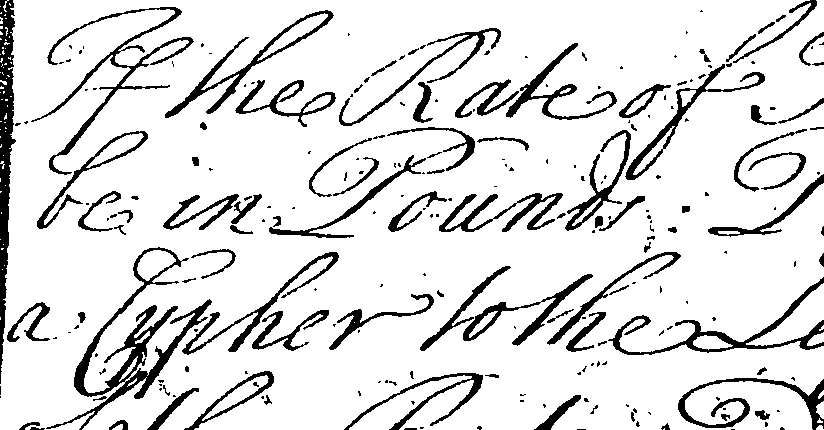 If the Rate of
be in Pounds:
a Cypher to the